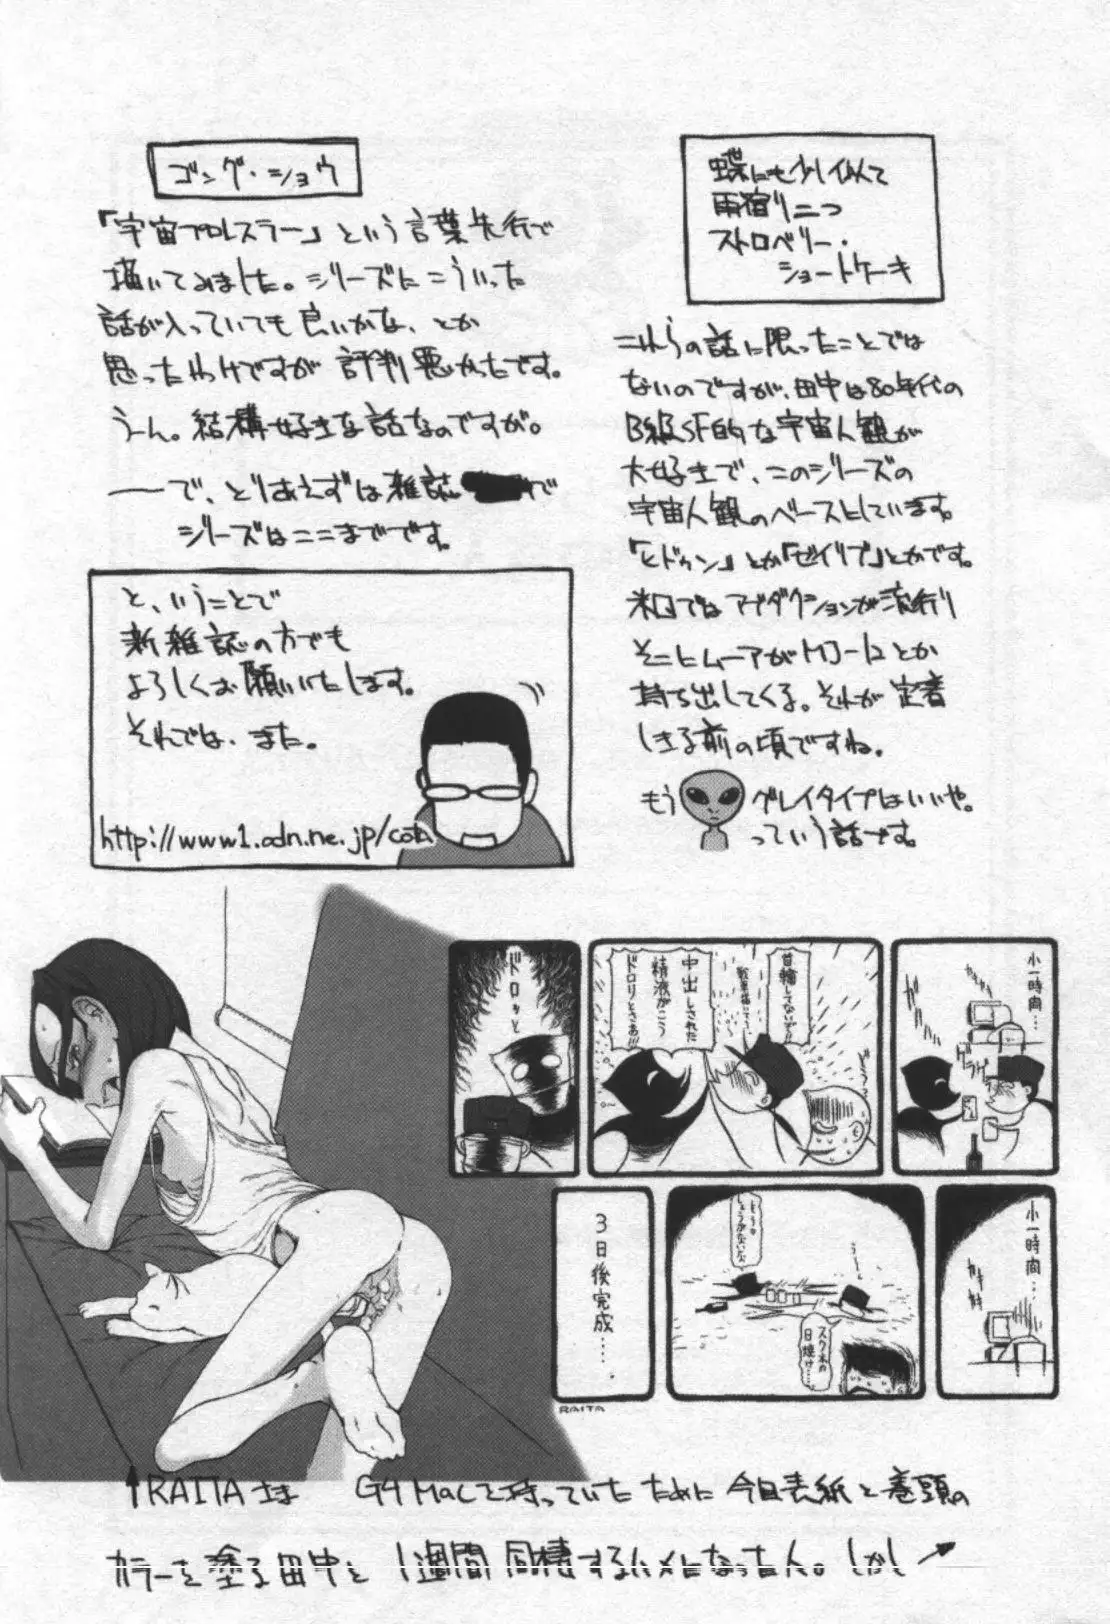 蝶にも少し似て
雨宿り二つ
ストロベリー・
ショートケーキ
これらの話に限ったことでは
ないのですが、田中は80年代の
B級SF的な宇宙人観が
大好きで、このシリーズの
宇宙人観のベースにしています。
「ヒドゥン」とか「ゼイリブ」とかです。
米国ではアブダクションが流行り
そこにムーアがMJ-12とか
持ち出してくる。それが定着
しきる前の頃ですね。
もう グレイタイプはいいや。
っていう話です。
ゴング・ショウ
「宇宙プロレスラー」という言葉先行で
描いてみました。シリーズにこういった
話が入っていても良いかな、とか
思ったわけですが評判悪かったです。
うーん。結構好きな話なのですが。
――で、とりあえずは雑誌 で
シリーズはここまでです。
と、いうことで
新雑誌の方でも
よろしくお願いいたします。
それでは、また。
http://www1.odn.ne.jp/cota
小一時間…
ゲラゲラ
首輪してないぞ!!
中出しされた
精液がこう
ドロリとさぁ!!!
ドロッと
小一時間…
カキ
う〜
しょうがないな
スク水の
日焼け…
3日後完成…‥
RAITA
↑RAITAさま G4 Macを持っていたために今日表紙と巻頭の
カラーを塗る田中と1週間同棲するハメになった人。しかし↗